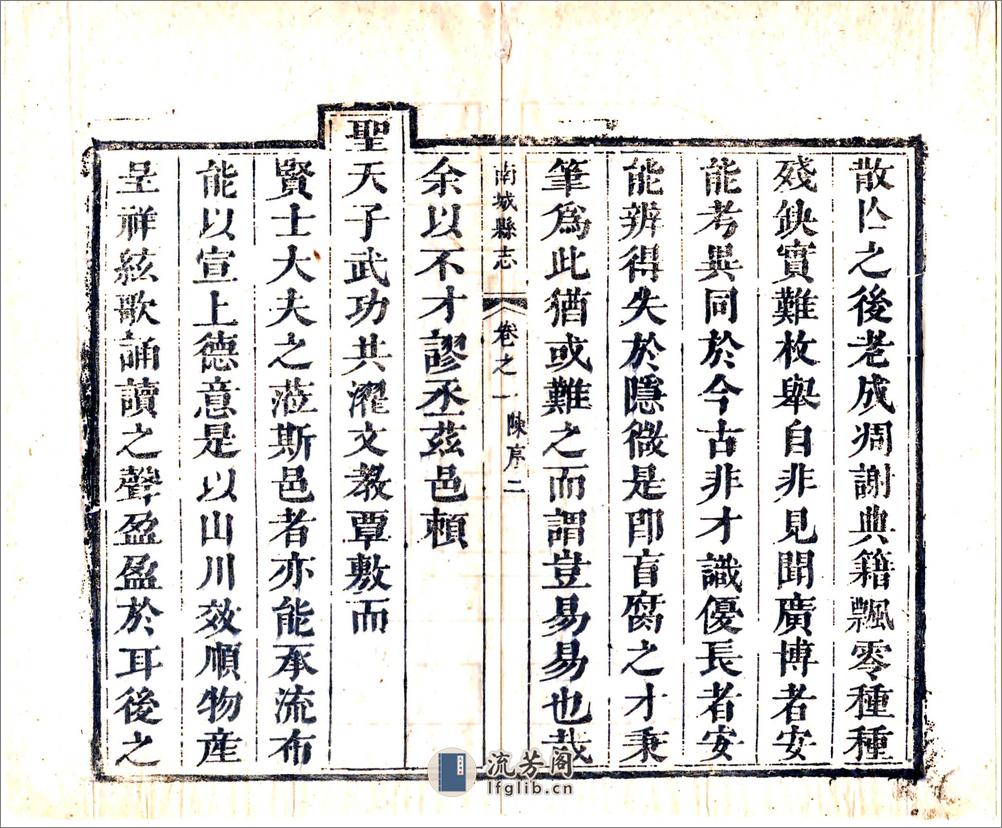 散亾之後老成凋謝典籍飄零種種
殘缺實難枚舉自非見聞廣博者安
能考異同於今古非才識優長者安
能辨得失於隱微是即盲腐之才秉
筆爲此猶或難之而謂豈易易也哉
南城縣志 卷之一 陳序 二
余以不才謬丞茲邑賴
聖天子武功共濯文教覃敷而
賢士大夫之蒞斯邑者亦能承流布
能以宣上德意是以山川效順物産
呈祥絃歌誦讀之聲盈盈於耳後之
流芳阁
lfglib.cn